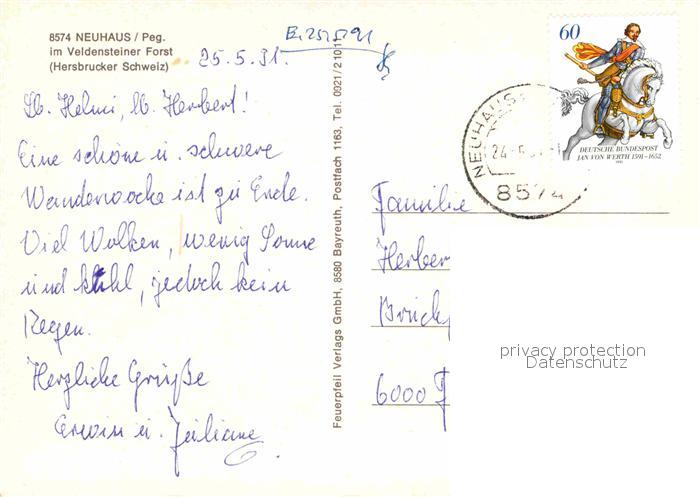 8574 NEUHAUS / Peg.
im Veldensteiner Forst
(Hersbrucker Schweiz)
E. 25.5.91
25.5.91.
Lb. Helmi, lb. Herbert!
Eine schöne u. schwere
Wanderwoche ist zu Ende.
Viel Wolken, wenig Sonne
und kühl, jedoch kein
Regen.
Herzliche Grüße
Erwin u. Juliane
Feuerpfeil Verlags GmbH, 8580 Bayreuth, Postfach 1163, Tel. 0921/21011
60
DEUTSCHE BUNDESPOST
JAN VON WERTH 1591-1652
1991
NEUHAUS
24.-5.9
8574
Familie
Herber
Brück
6000 F
privacy protection
Datenschutz